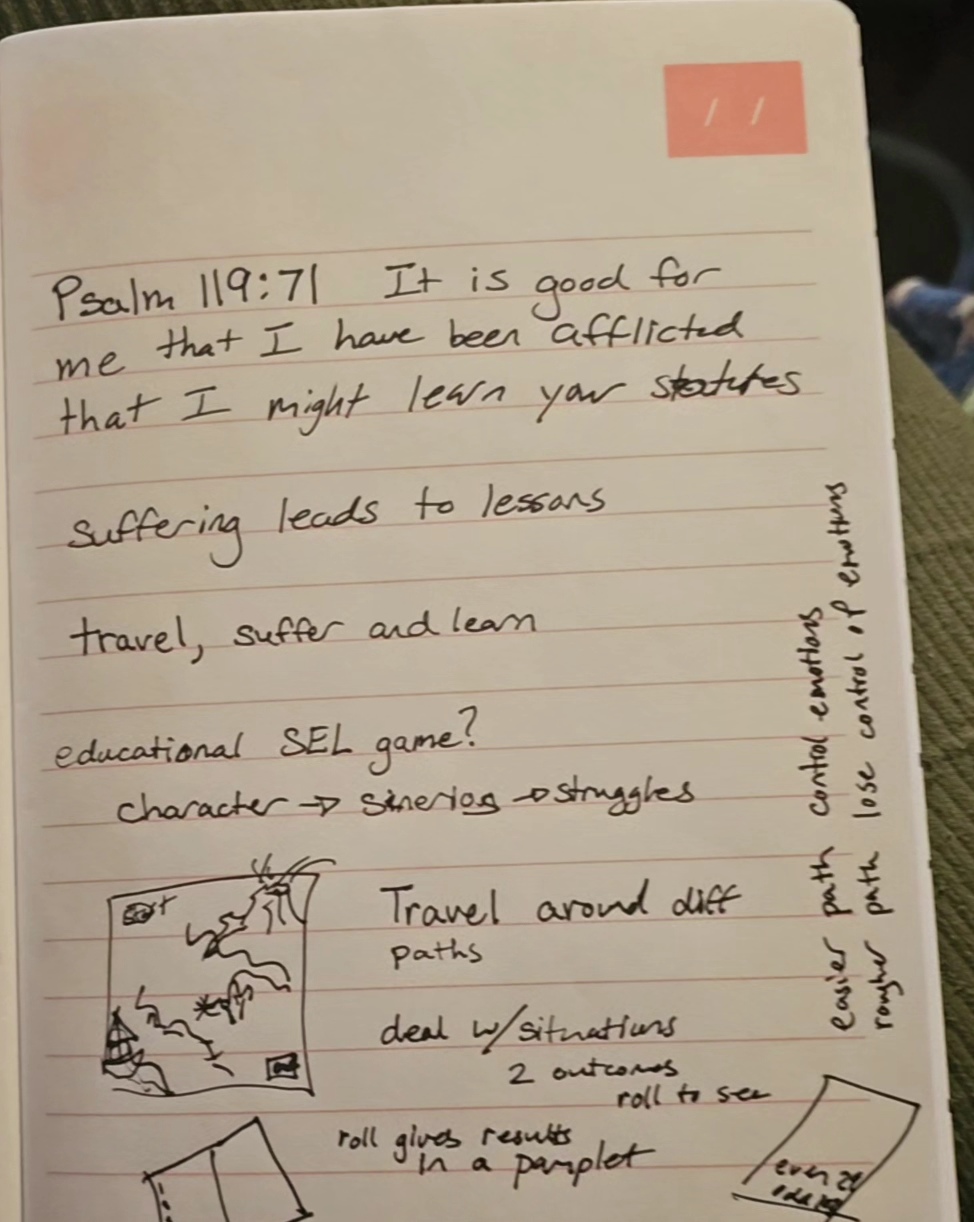 / /
Psalm 119:71 It is good for
me that I have been afflicted
that I might learn your statutes
suffering leads to lessons
travel, suffer and learn
educational SEL game?
character → sinerios → struggles
Travel around diff
paths
deal w/situations
2 outcomes
roll to see
roll gives results
in a pamplet
even
easier path control emotions
rougher path lose control of emotions